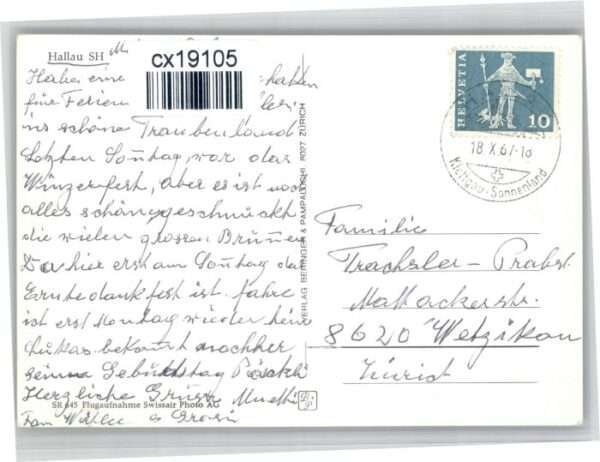 Hallau SH
cx19105
Habe eine
für Ferien
ins schöne Traubenland
Letzten Sontag war das
Winzerfest, aber es ist noch
alles schön geschmückt
die vielen grossen Brünnen
Da hier erst am Sontag das
Erntedankfest ist. fahre
ich erst Montag wieder heim
Lukas bekomt nochher
Geburtstag Päckli
Herzliche Grüsse
Fam
SR 645 Flugaufnahme Swissair Photo AG
VERLAG BERINGER & PAMPALUCHI 8027 ZÜRICH
HELVETIA
10
18.X.67-18
Klettgau-Sonnenland
Familie
Trachsler-Probst
Mattackerstr.
8620 Wetzikon
Zürich